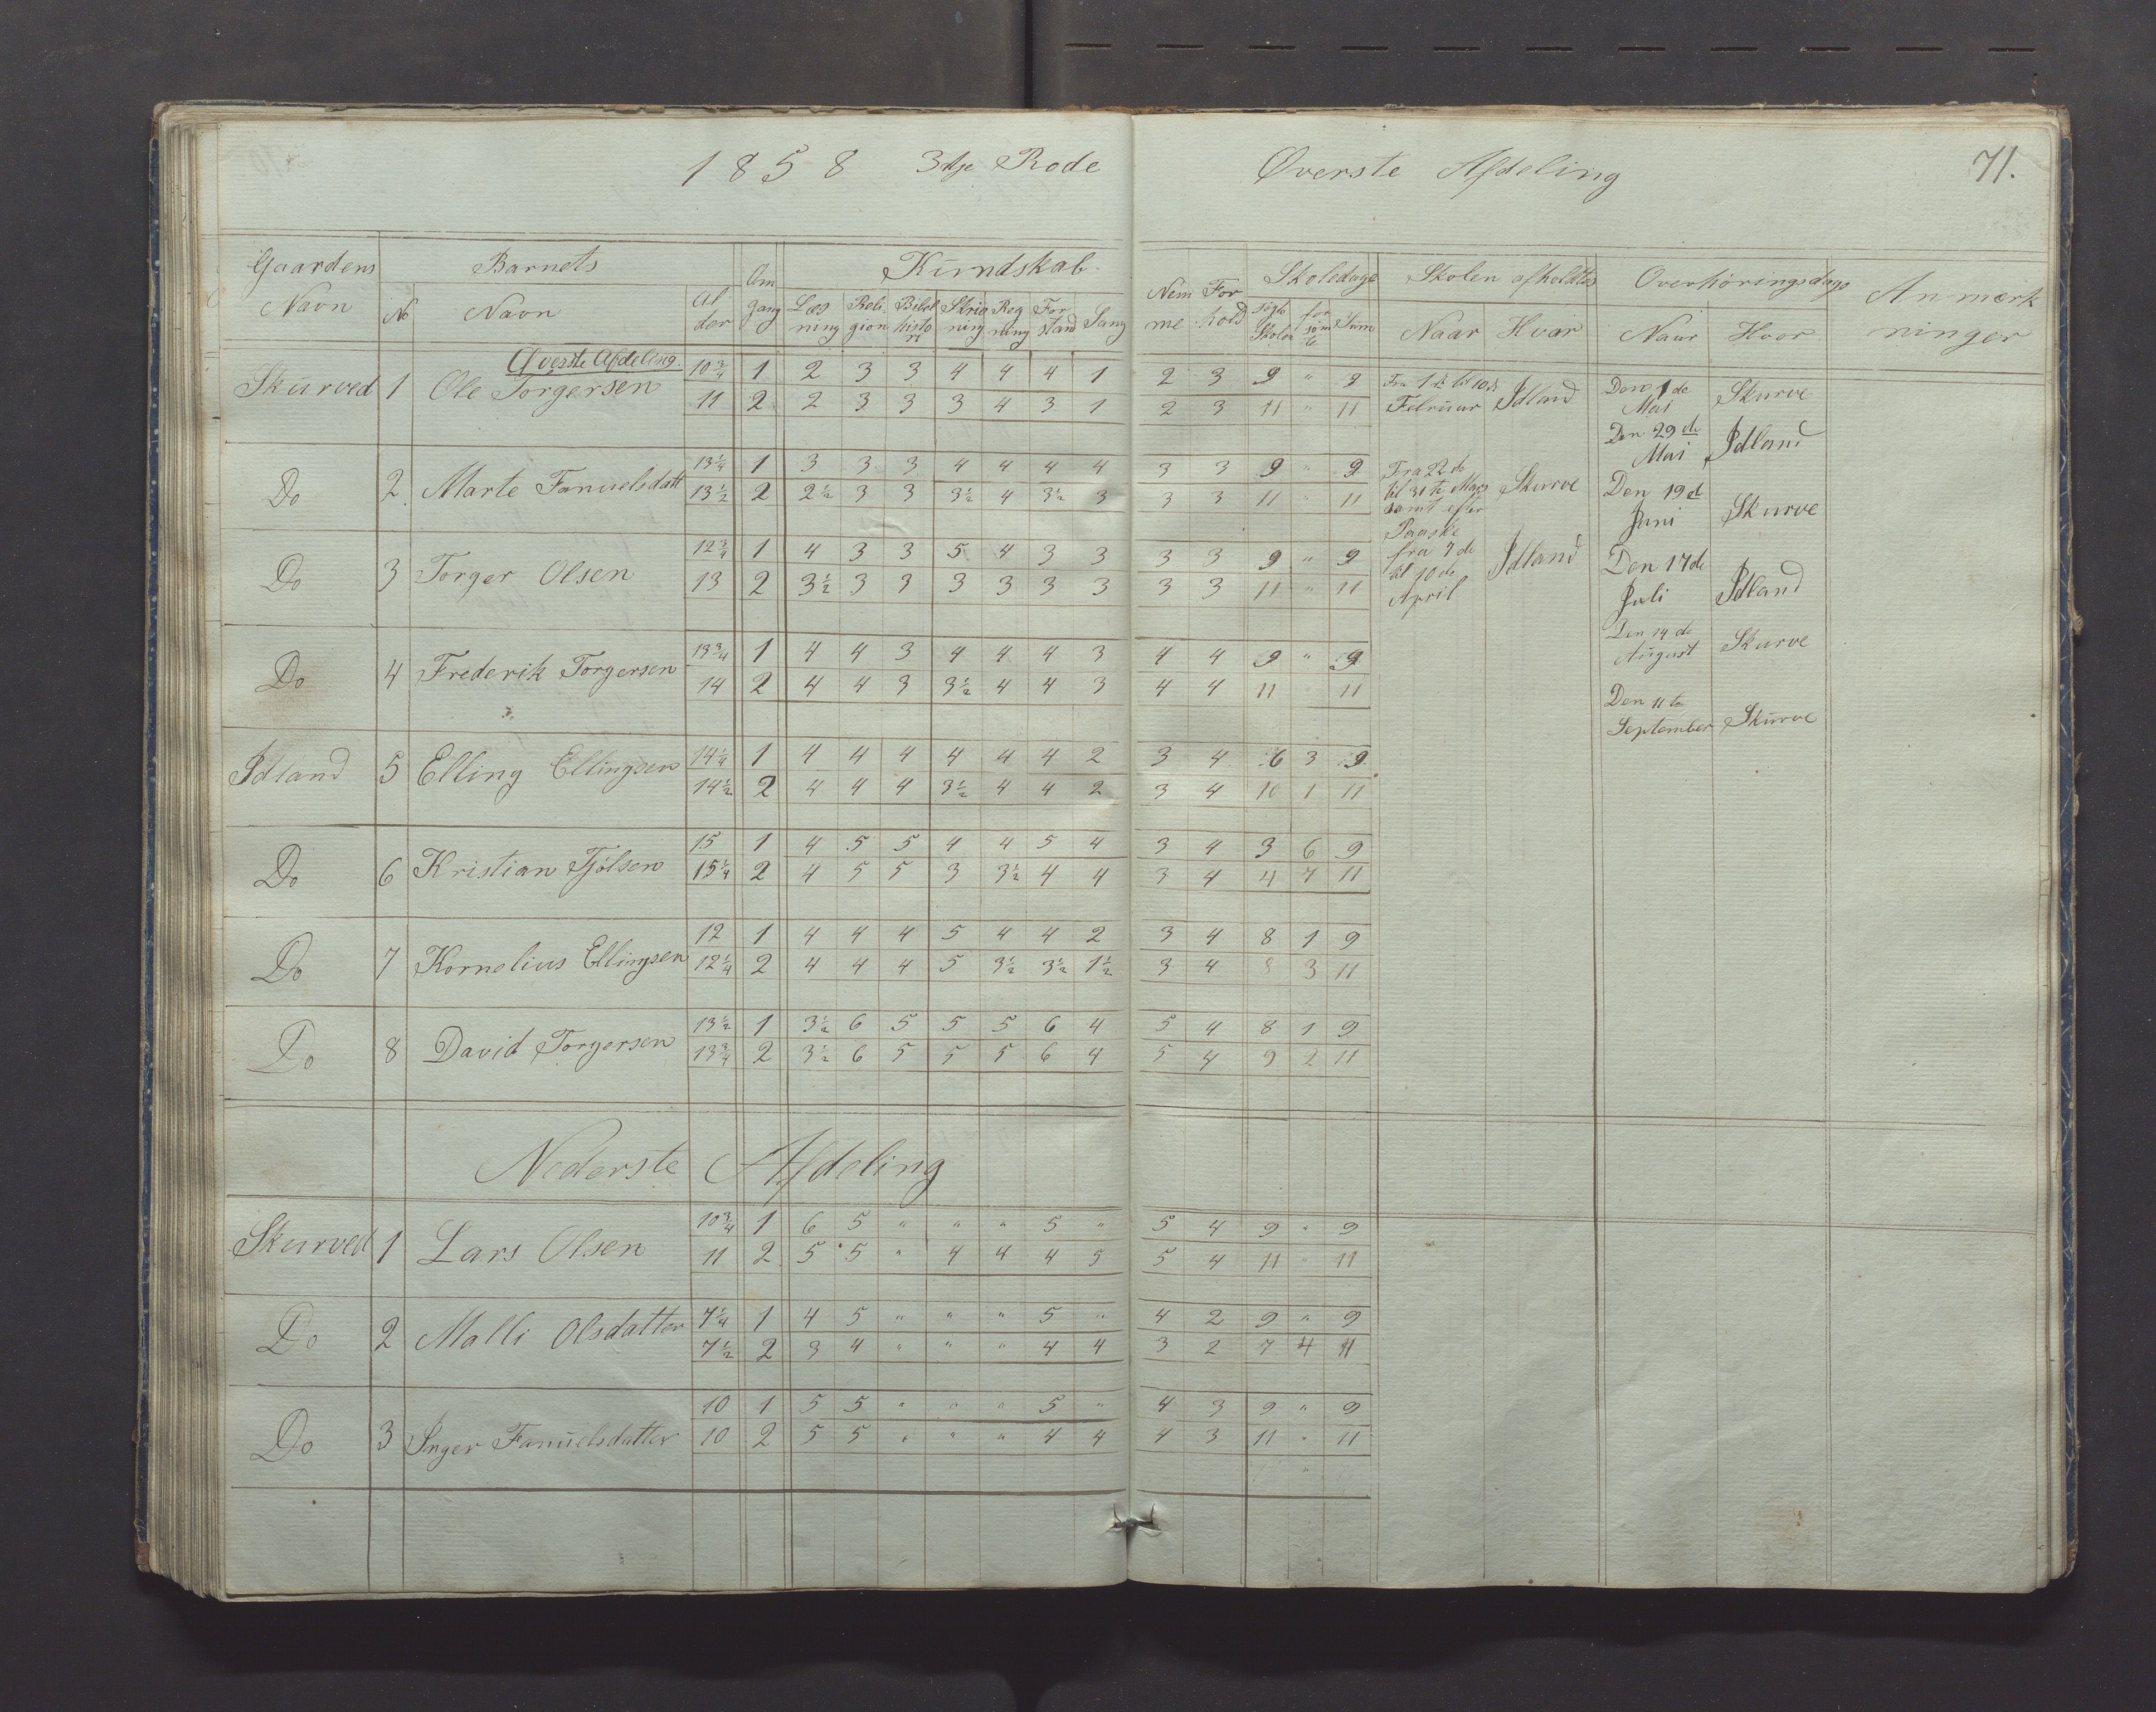 1858 3die Rode Øverste Afdeling 71.
Gaardens Navn No Barnets Navn Alder Omgang Kundskab Læsning Religion Bibelhistori Skrivning Regning Forstand Sang Nemme Forhold Skoledage søgte Skolen forsømte Sum Skolen afholdtes Naar Hvor Overhøringsdage Naar Hvor Anmærkninger
Øverste Afdeling.
Skurved 1 Ole Torgersen 10 3/4 1 2 3 3 4 4 4 1 2 3 9 " 9
11 2 2 3 3 3 4 3 1 2 3 11 " 11
Do 2 Marte Fanuelsdatt 13 1/4 1 3 3 3 4 4 4 4 3 3 9 " 9
13 1/2 2 2 1/2 3 3 3 1/2 4 3 1/2 3 3 3 11 " 11
Do 3 Torger Olsen 12 3/4 1 4 3 3 5 4 3 3 3 3 9 " 9
13 2 3 1/2 3 3 3 3 3 3 3 3 11 " 11
Do 4 Frederik Torgersen 13 3/4 1 4 4 3 4 4 4 3 4 4 9 " 9
14 2 4 4 3 3 1/2 4 4 3 4 4 11 11
Idland 5 Elling Ellingsen 14 1/4 1 4 4 4 4 4 4 2 3 4 6 3 9
14 1/2 2 4 4 4 3 1/2 4 4 2 3 4 10 1 11
Do 6 Kristian Tjølsen 15 1 4 5 5 4 4 5 4 3 4 3 6 9
15 1/4 2 4 5 5 3 3 1/2 4 4 3 4 4 7 11
Do 7 Kornelius Ellingsen 12 1 4 4 4 5 4 4 2 3 4 8 1 9
12 1/4 2 4 4 4 5 3 1/2 3 1/2 1 1/2 3 4 8 3 11
Do 8 David Torgersen 13 1/2 1 3 1/2 6 5 5 5 6 4 5 4 8 1 9
13 3/4 2 3 1/2 6 5 5 5 6 4 5 4 9 2 11
Fra 1ste til 10de
Februar Idland
Fra 22de
til 31te Mars Skurve
samt efter
Paaske
fra 7de
til 10de Idland
April
Den 1de
Mai Skurve
Den 29de
Mai Idland
Den 19de
Juni Skurve
Den 17de
Juli Idland
Den 14de
August Skurve
Den 11te
September Skurve
Nederste Afdeling
Skurved 1 Lars Olsen 10 3/4 1 6 5 " " " 5 " 5 4 9 " 9
11 2 5 5 " 4 4 4 5 5 4 11 " 11
Do 2 Malli Olsdatter 7 1/4 1 4 5 " " " 5 " 4 2 9 " 9
7 1/2 2 3 4 " " " 4 4 3 2 7 4 11
Do 3 Inger Fanuelsdatter 10 1 5 5 " " " 5 " 4 3 9 " 9
10 2 5 5 " " " 4 4 4 3 11 " 11
"